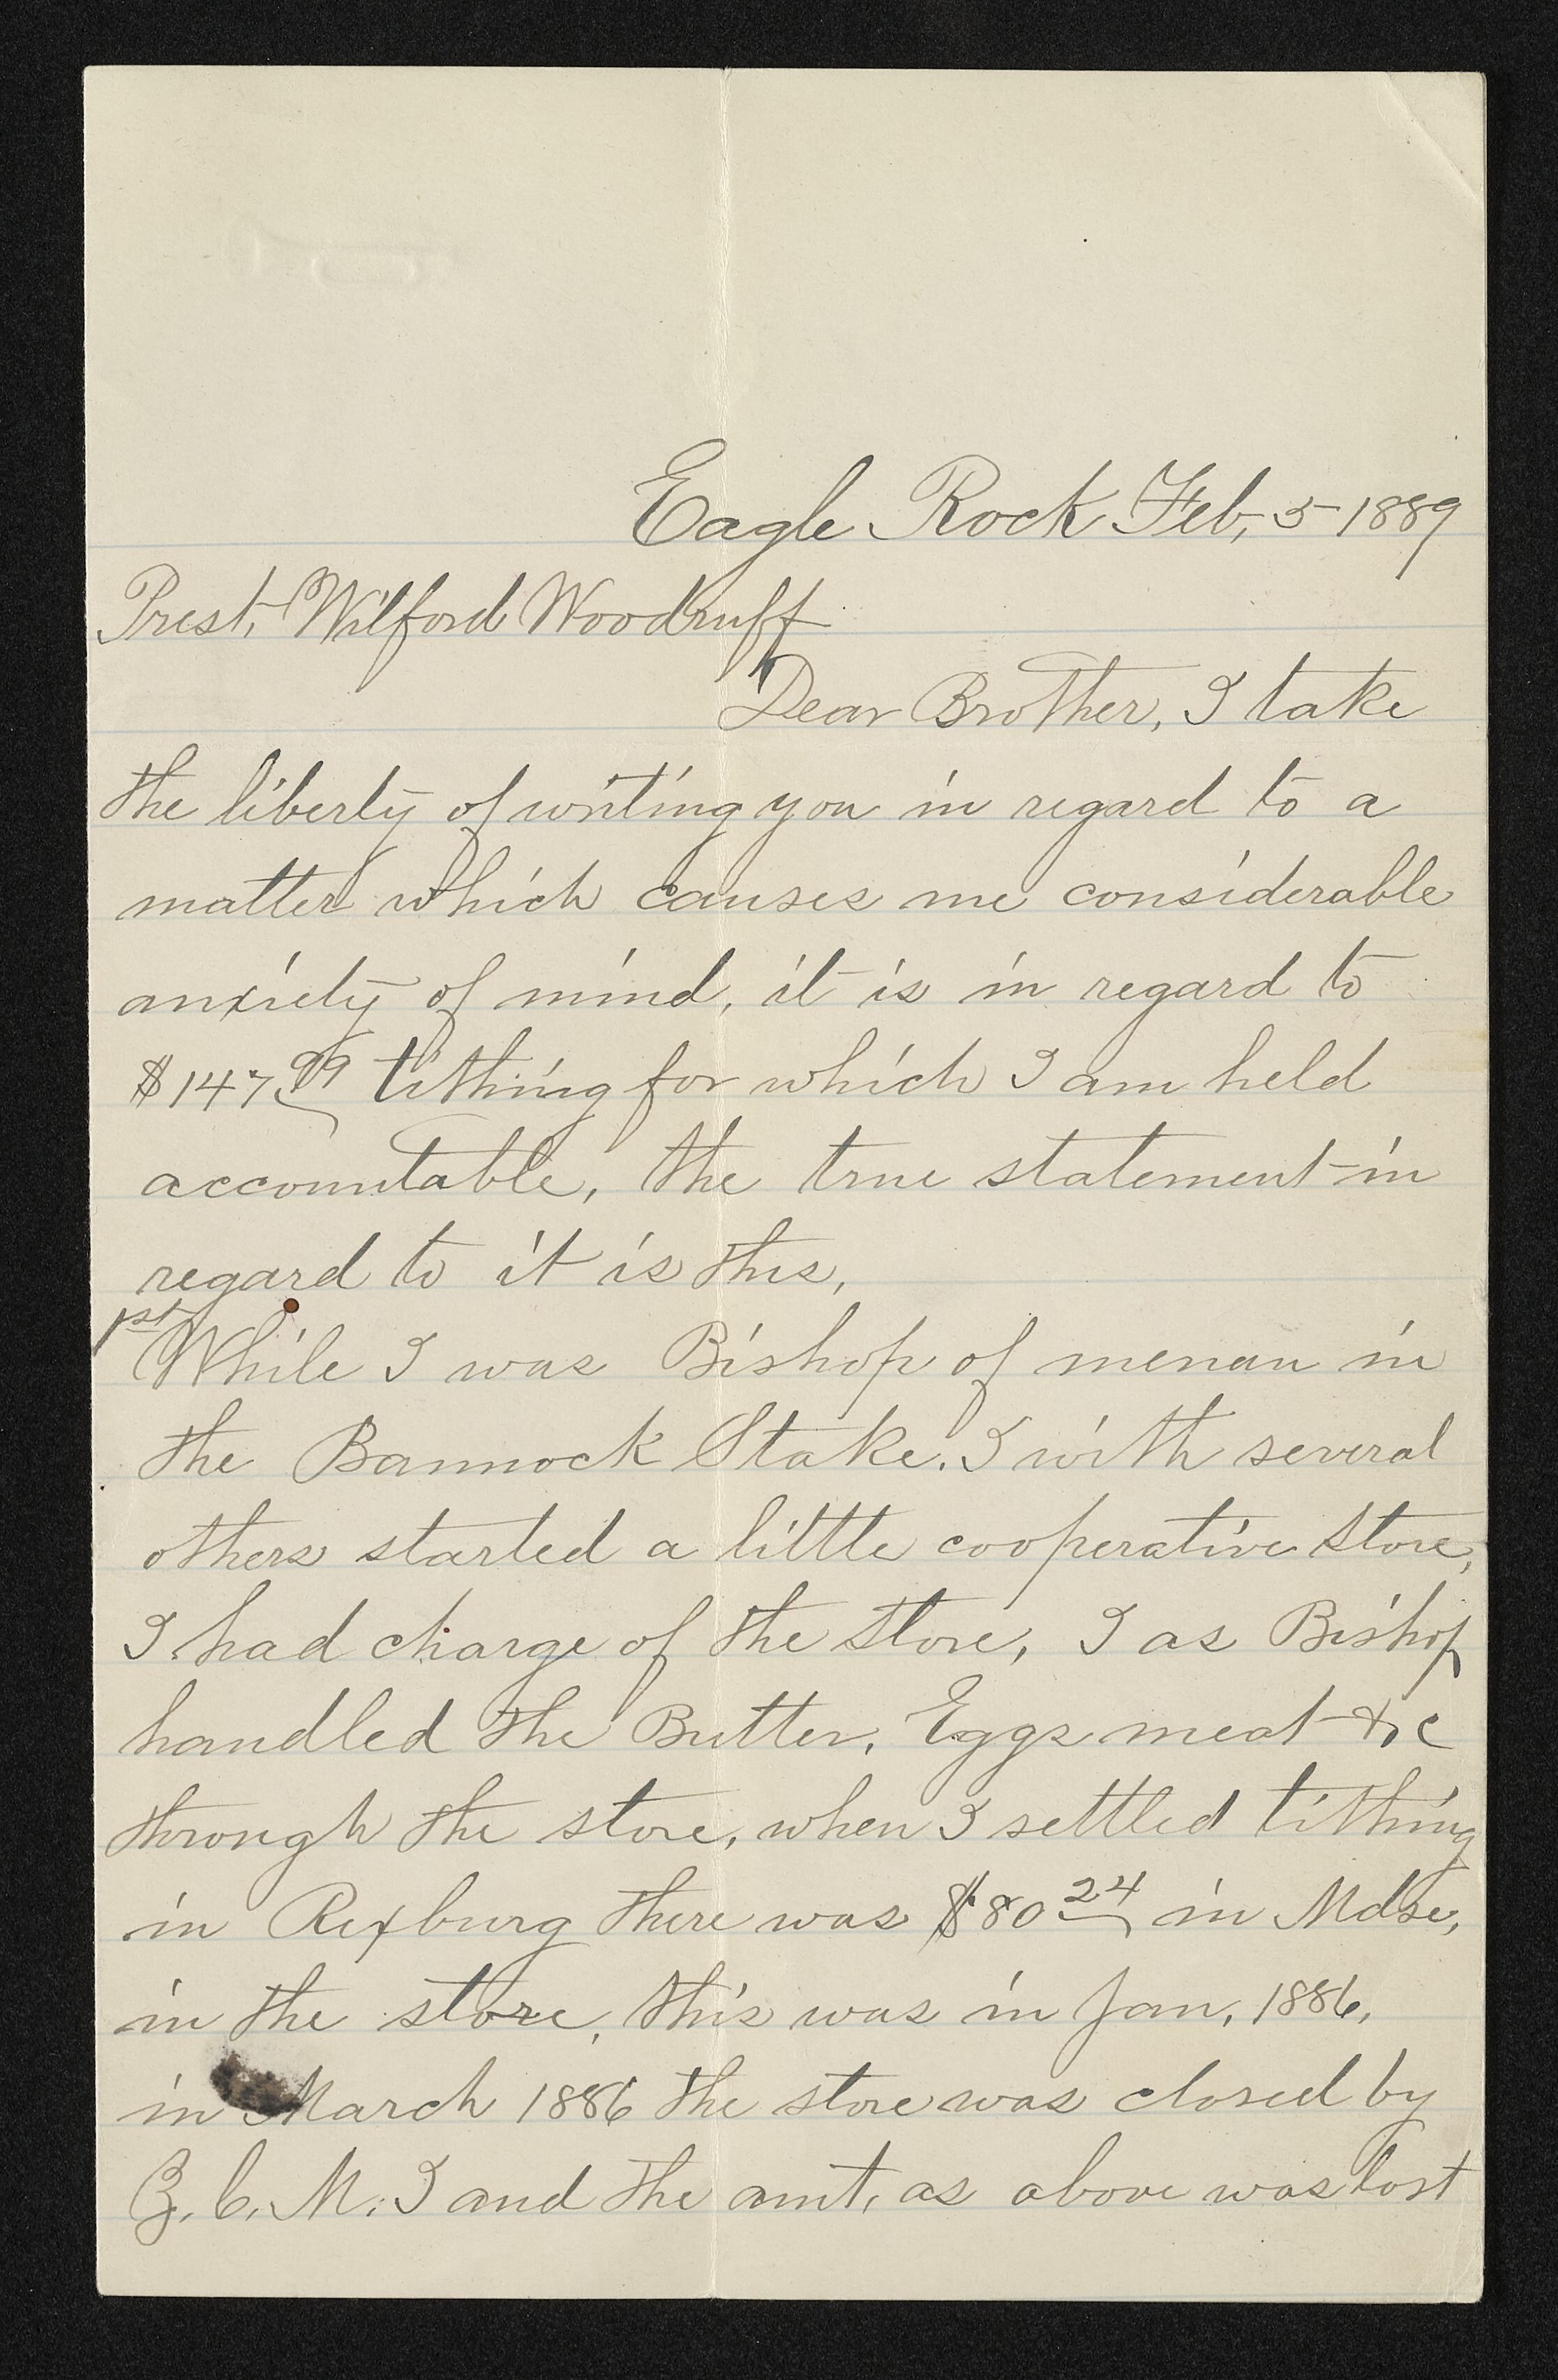 Eagle Rock Feb, 5 1889
Prest, Wilford Woodruff
Dear Brother, I take
the liberty of writing you in regard to a
matter which causes me considerable
anxiety of mind, it is in regard to
$147 99 tithing for which I am held
accountable, the true statement in
regard to it is this,
1st While I was Bishop of menan in
the Bannock Stake. I with several
others started a little cooperative store,
I had charge of the store, I as Bishop
handled the Butter, Eggs meat &c
through the store, when I settled tithing
in Rexburg there was $80 24 in Mdse,
in the store, this was in Jan, 1886,
in March 1886 the store was closed by
Z. C. M. I and the amt, as above was lost